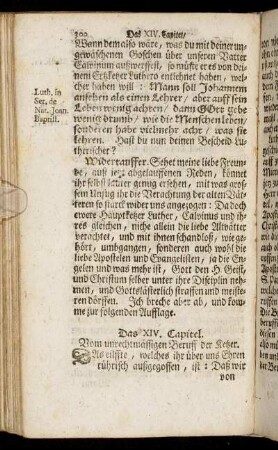 300 Das XIV. Capitel/
Wann dem also wäre/ was du mit deiner un-
gewäschenen Goschen über unseren Vatter
Calvinum außwerffest/ so müste er es von dei-
nem Ertzketzer Luthero entlehnet haben/ wel-
cher haben will: Mann soll Johannem
ansehen als einen Lehrer/ aber auff sein
Leben wenig achten/ dann GOtt gebe
wenig drumb/ wie die Menschen leben/
sonderen habe vielmehr acht/ was sie
lehren. Hast du nun deinen Bescheid Lu-
therischer?
Luth. in
Ser. de
Nat. Joan.
Baptist.
Widertauffer. Sehet meine liebe Freun-
de/ auß jetz abgelauffenen Reden/ könnet
ihr selbst leichter genug ersehen/ mit was gros-
sem Unfug ihr die Verachtung der alten Vät-
teren so starck wider uns anzogen: Da doch
ewere Hauptketzer Luther/ Calvinus und ih-
res gleichen/ nicht allein die liebe Altvätter
verachtet/ und mit ihnen schandloß/ wie ge-
hört/ umbgangen/ sonderen auch wohl die
liebe Apostelen und Evangelisten/ ja die En-
gelen und was mehr ist/ Gott den H. Geist/
und Christum selber unter ihre Disciplin neh-
men/ und Gottslästerlich straffen und meiste-
ren dörffen. Ich breche aber ab/ und kom-
me zur folgenden Aufflage.
Das XIV. Capitel.
Vom unrechtmässigen Beruff der Ketzer.
DAs eilffte/ welches ihr über uns Ehren
rührisch außgegossen/ ist: Daß wir
von